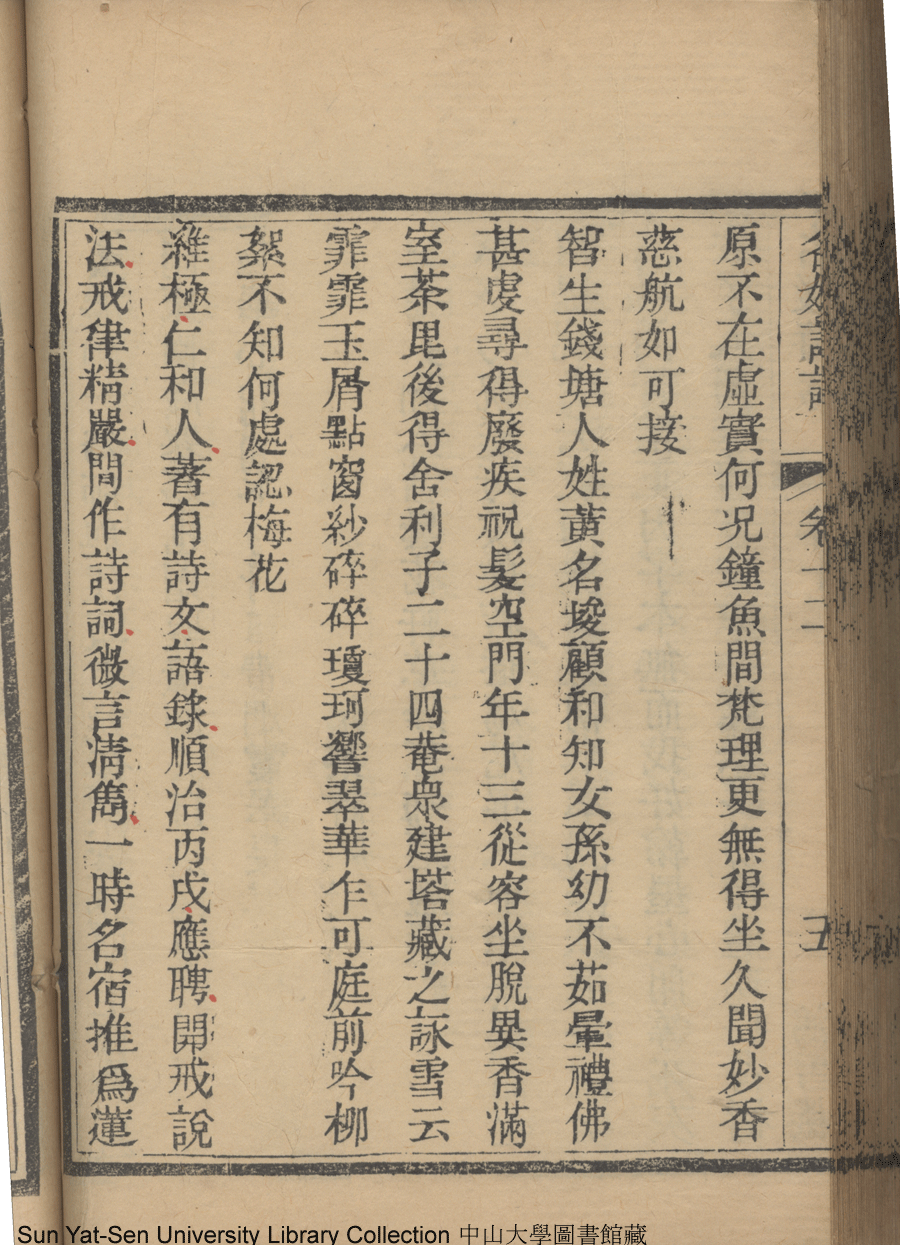 名媛詩話 卷十二 五
原不在虛實何況鐘魚間梵理更無得坐久聞妙香
慈航如可接
智生錢塘人姓黃名埈顧和知女孫幼不茹暈禮佛
甚虔尋得廢疾祝髮空門年十三從容坐脫異香滿
室茶毘後得舍利子二十四菴衆建塔藏之詠雪云
霏霏玉屑點窗紗碎碎瓊珂響翠華乍可庭前吟柳
絮不知何處認梅花
維極仁和人著有詩文語錄順治丙戌應聘開戒說
法戒律精嚴間作詩詞微言清雋一時名宿推爲蓮
Sun Yat-Sen University Library Collection 中山大學圖書館藏